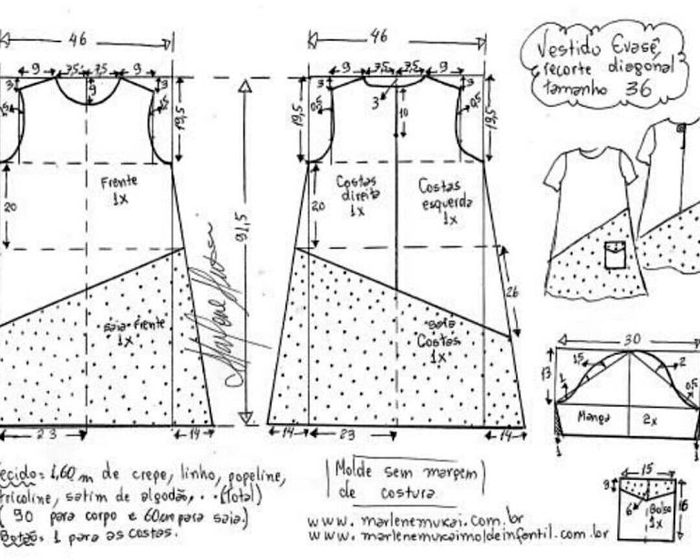 46
46
Vestido Evasê
recorte diagonal
tamanho 36
9 7,5 7,5 9
9 7,5 7,5 9
3 9 3
3 3 3
19,5
0,5
10
19,5
Frente
1x
20
91,5
Costas
direita
1x
Costas
esquerda
1x
20
26
saia-Frente
1x
saia
Costas
1x
23
14
14
23
14
30
13
1,5
2
1
0,5
Manga
2x
1
1
15
3
6
Bolso
1x
16
ecido: 1,60 m de crepe, linho, popeline,
tricoline, satim de algodão,... (total)
( 90 para corpo e 60cm para saia.)
Botão: 1 para as costas.
Molde sem margem
de costura
www.marlenemukai.com.br
www.marlenemukaimoldeinfantil.com.br